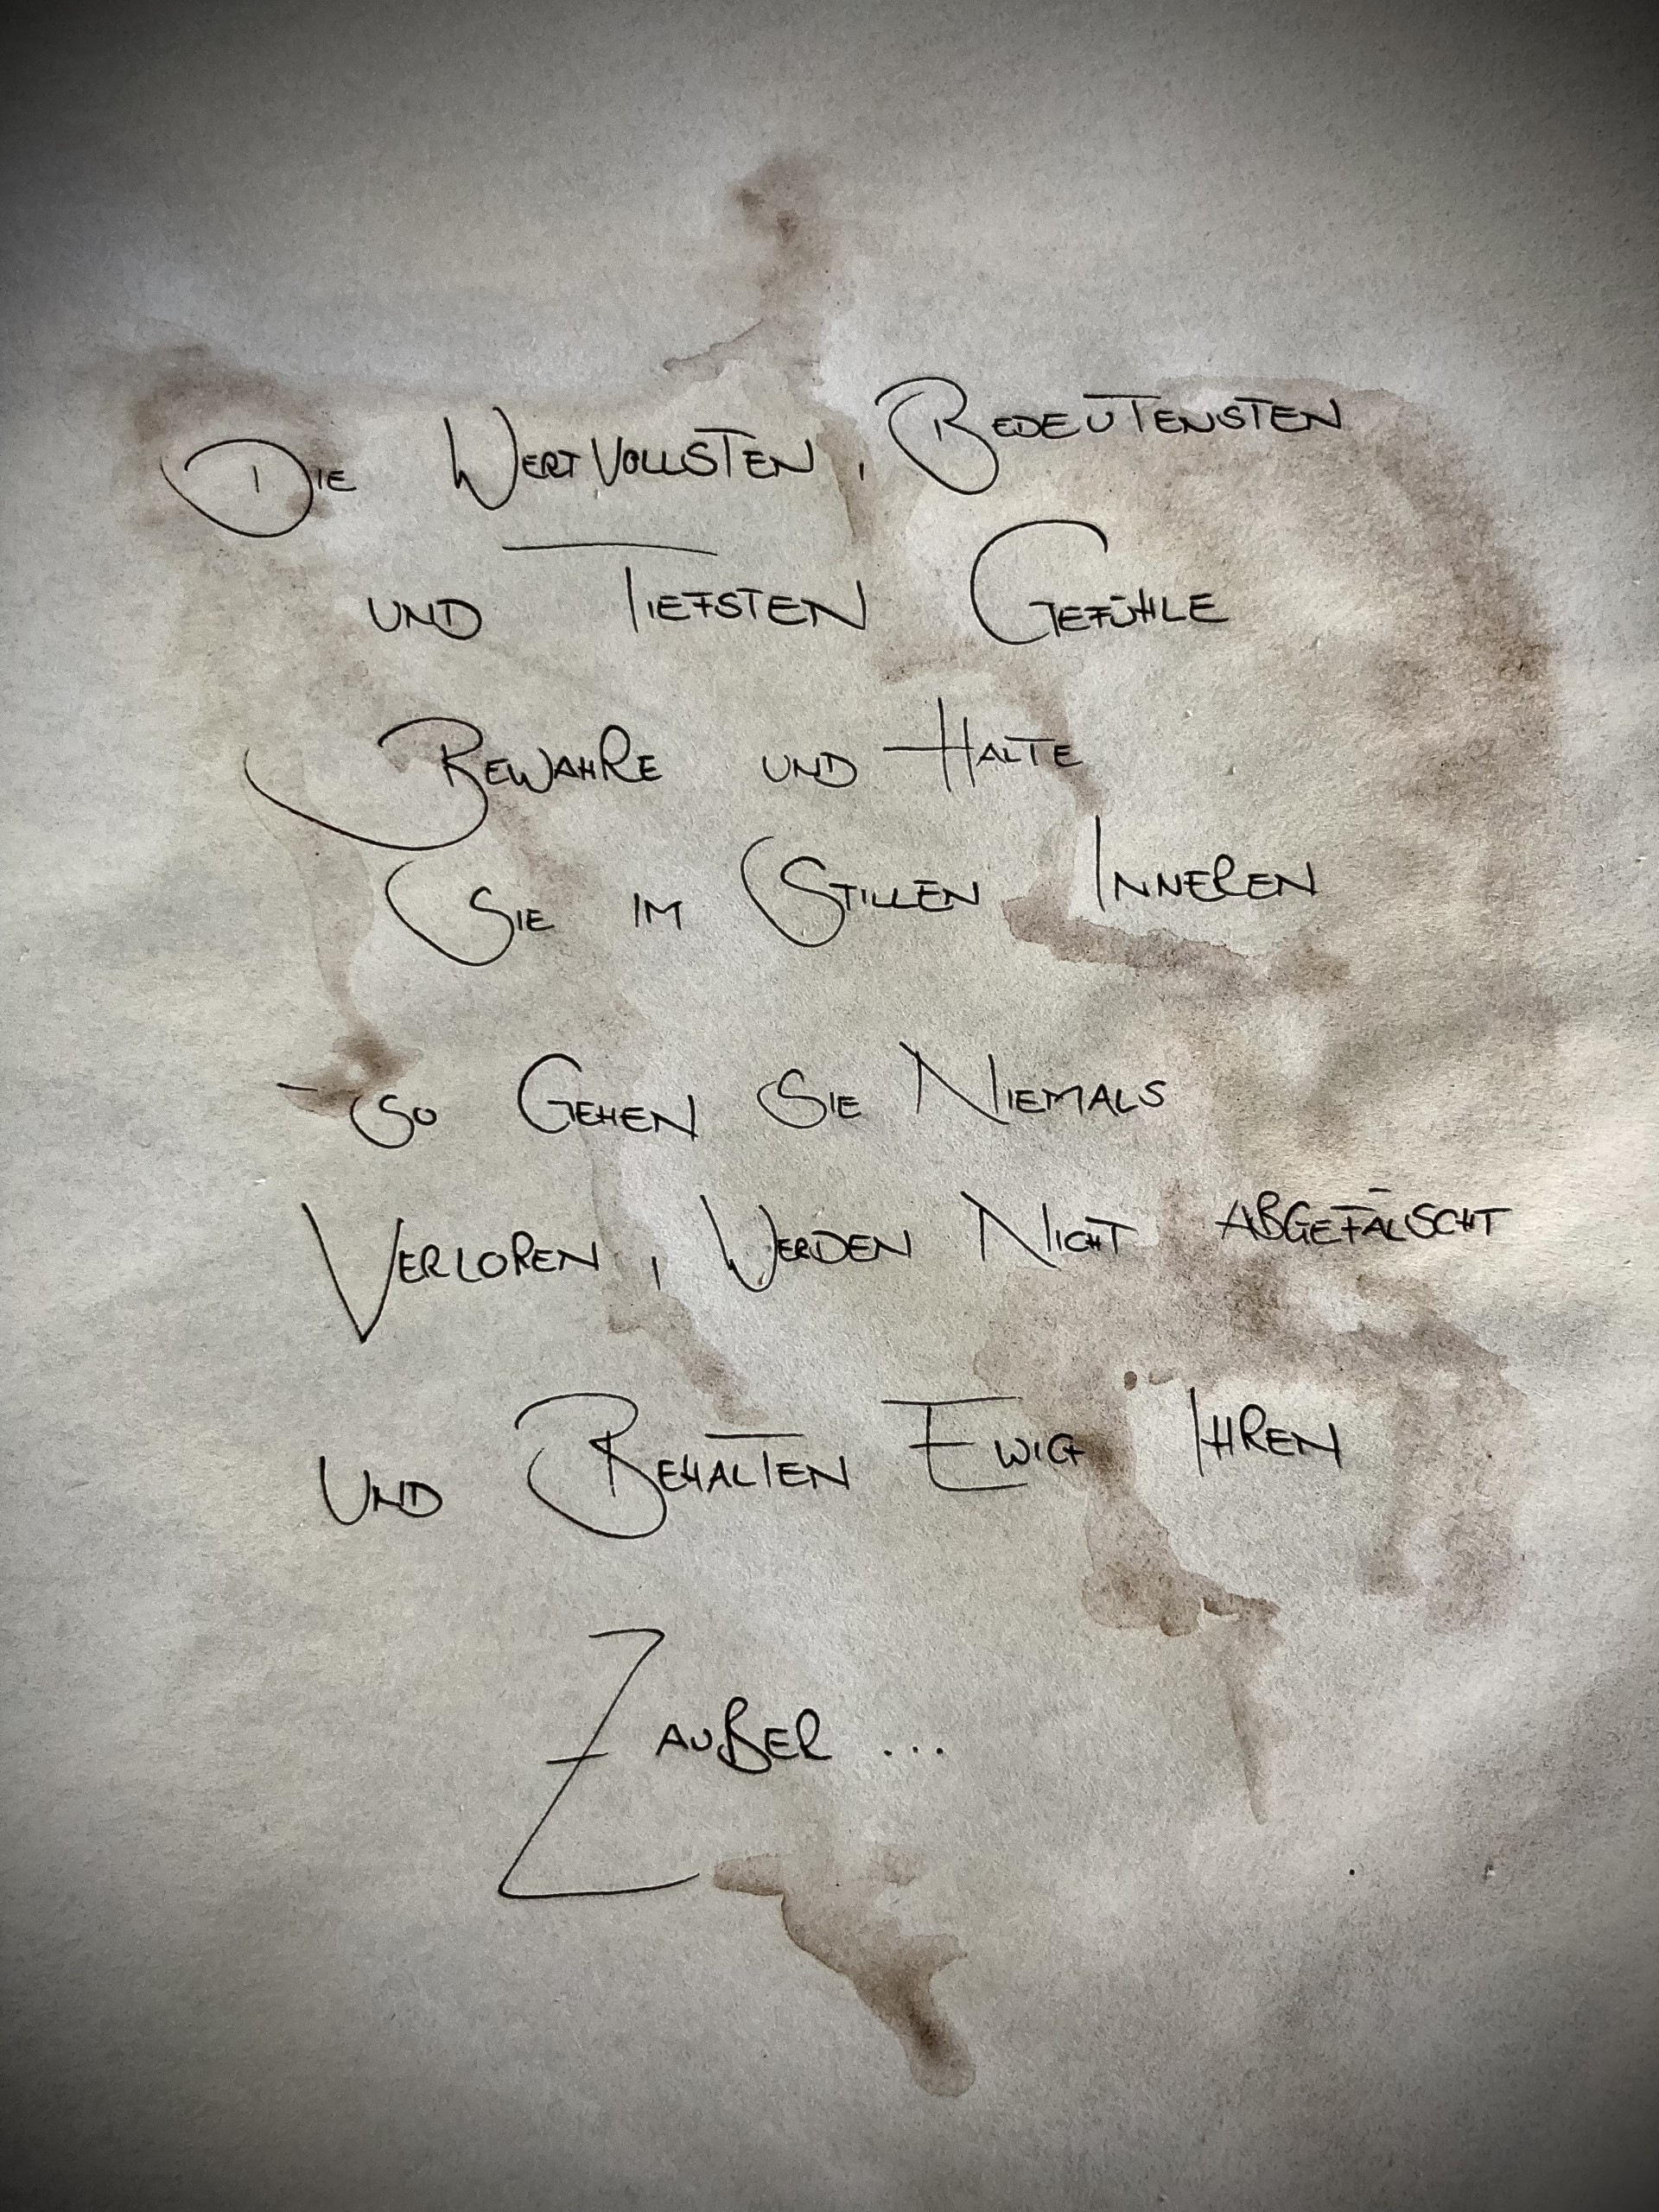 Die Wertvollsten, Bedeutensten
und Tiefsten Gefühle
Bewahre und Halte
Sie im Stillen Inneren
- So Gehen Sie Niemals
Verloren, Werden Nicht abgefäuscht
und Behalten Ewig Ihren
Zauber ...